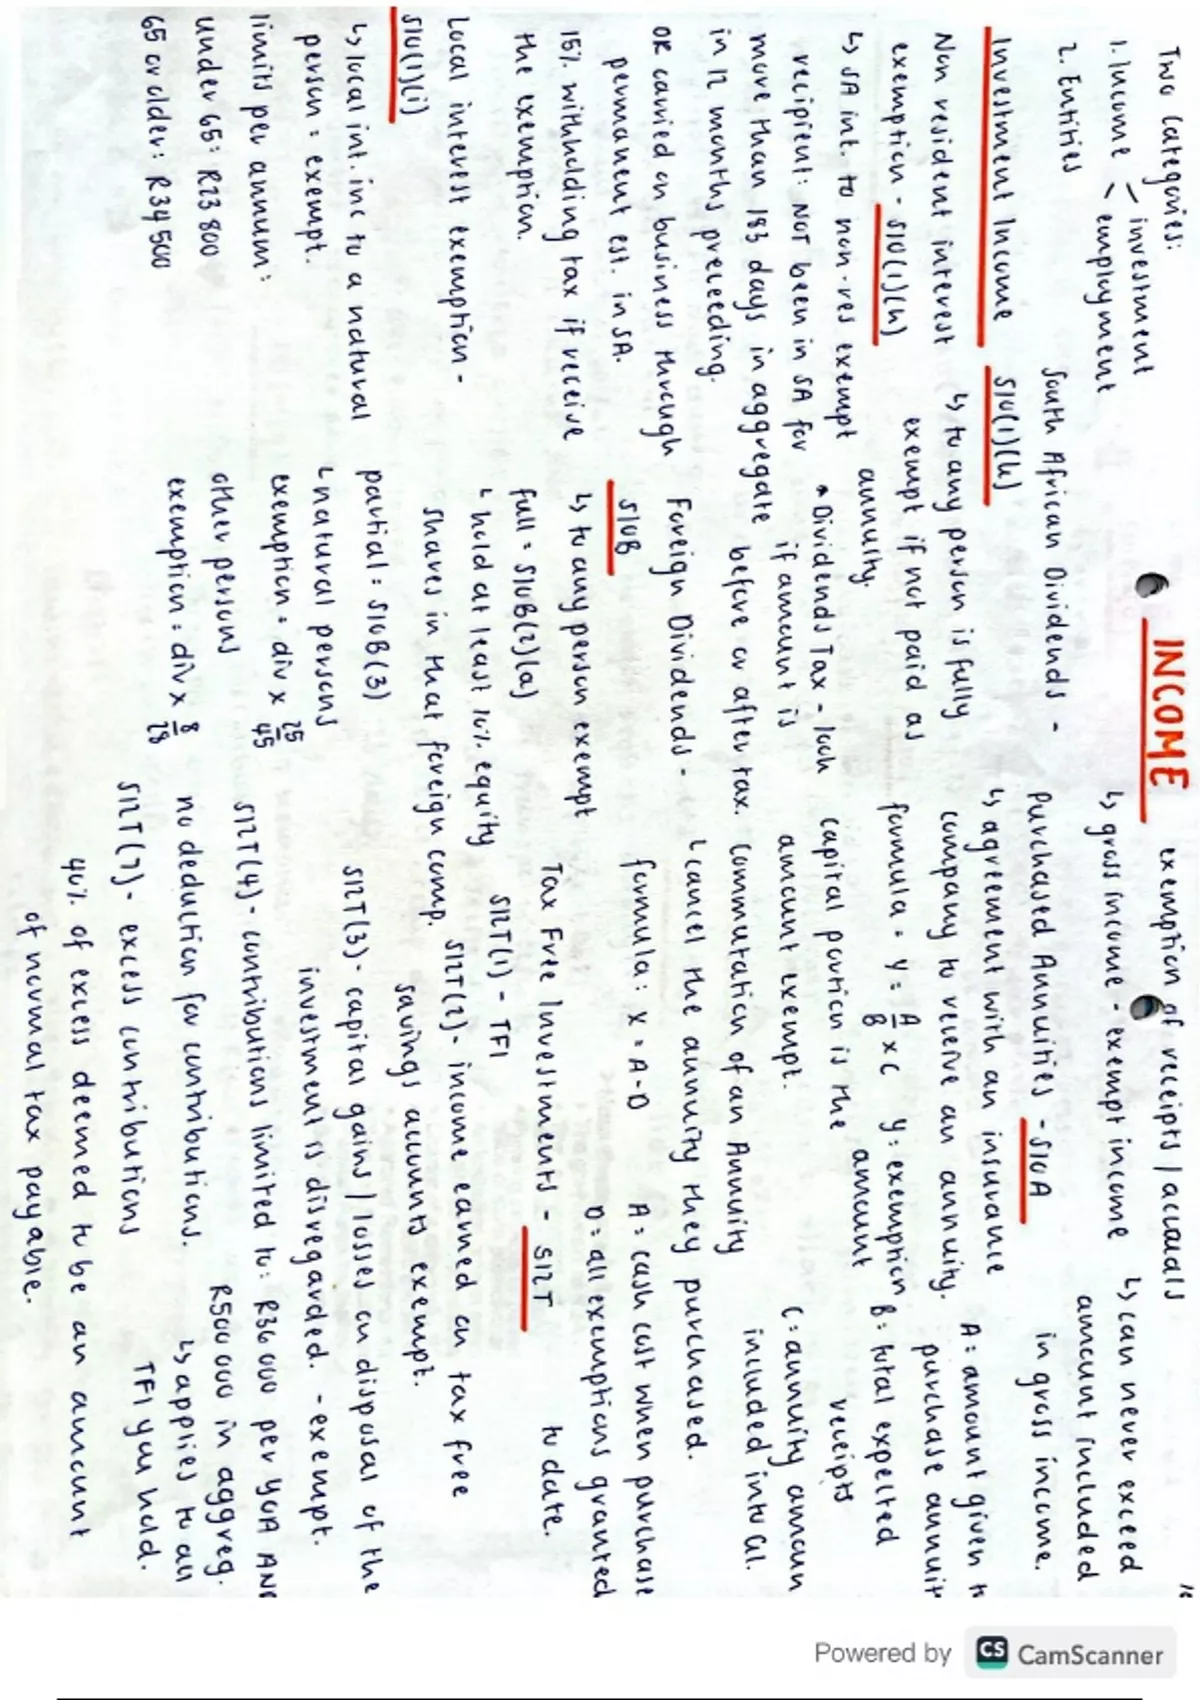 INCOME
Two categories:
1. Income - investment
- employment
2. Entities
Investment Income
Non resident interest
exemption - S10(1)(h)
↳ SA int. to non-res exempt
recipient: NOT been in SA for
more than 183 days in aggregate
in 12 months preceeding.
OR carried on business through
permanent est. in SA.
15% withholding tax if receive
the exemption.
Local interest exemption -
S10(1)(i)
↳ local int. inc to a natural
person = exempt.
limits per annum:
under 65: R23 800
65 or older: R34 500
South African Dividends -
S10(1)(k)
↳ to any person is fully
exempt if not paid as
annuity.
• Dividends Tax - look
if amount is
before or after tax.
Foreign Dividends -
S10B
↳ to any person exempt
full = S10B(2)(a)
↳ hold at least 10% equity
shares in that foreign comp.
partial = S10B(3)
↳ natural persons
exemption = div x 25/45
other persons
exemption = div x 8/28
exemption of receipts / accruals
↳ gross income - exempt income
↳ can never exceed
amount included
in gross income.
Purchased Annuities - S10A
↳ agreement with an insurance
company to receive an annuity.
formula = Y = A/B x C
Y = exemption
amount
A = amount given t
purchase annuit
B = total expected
receipts
C = annuity amoun
included into GI.
capital portion is the
amount exempt.
Commutation of an Annuity
↳ cancel the annuity they purchased.
formula: X = A - D
A = cash cost when purchase
D = all exemptions granted
to date.
Tax Free Investments - S12T
S12T(1) - TFI
S12T(2) - income earned on tax free
savings accounts exempt.
S12T(3) - capital gains / losses on disposal of the
investment is disregarded. - exempt.
S12T(4) - contributions limited to: R36 000 per YOA AN
R500 000 in aggreg.
no deduction for contributions.
↳ applies to all
TFI you hold.
S12T(7) - excess contributions
40% of excess deemed to be an amount
of normal tax payable.
Powered by CS CamScanner